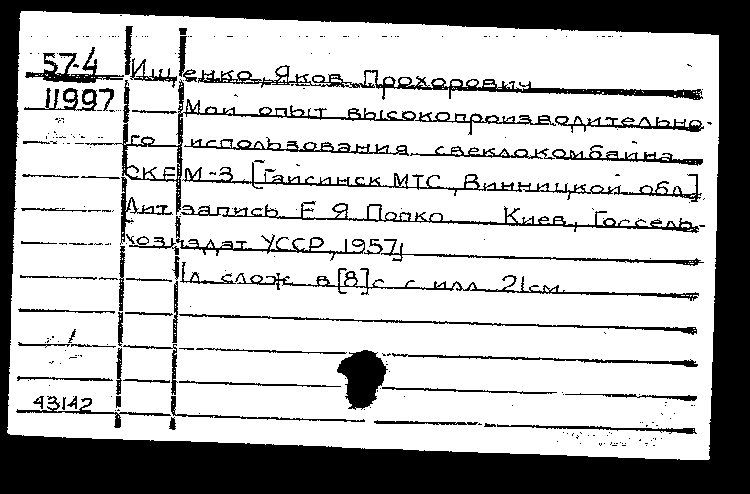 57-4 Ищенко, Яков Прохорович
11997 Мой опыт высокопроизводительно-
го использования свеклокомбайна
СКЕМ-3 [Гайсинск МТС, Винницкой обл]
Лит запись Е Я Попко Киев, Госсель-
хозиздат УССР, 1957
1л. слож в [8] с с илл 21см.
43142